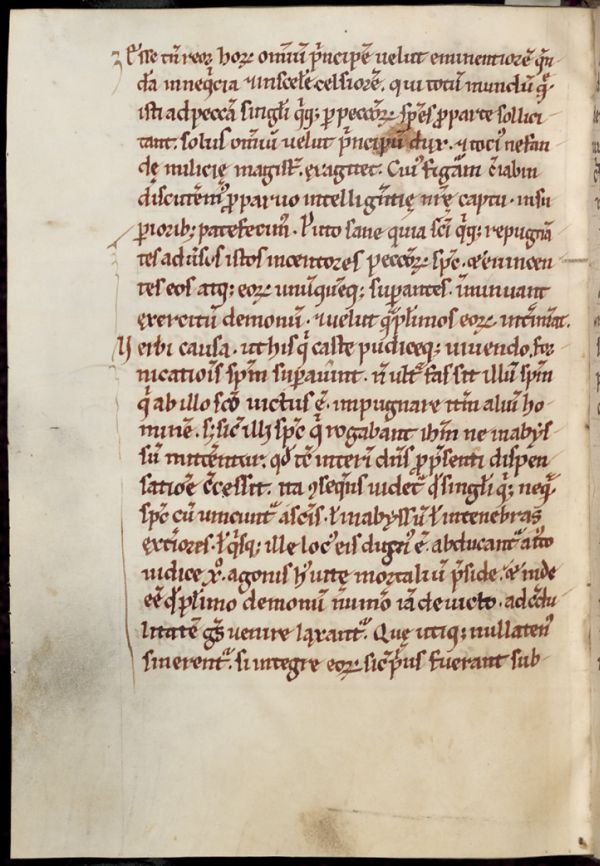 Esse tn̄ reor hoꝝ om̄iū p̄ncipē velut eminentiorē q̄n
dā in neq̄cia ⁊ in scelere celsiorē. qui totū mundū q̄
isti ad peccā singli q̄q; p̄ peccoꝝ. sp̄es p̄ parte sollici
tant. solus om̄iū velut p̄ncipiū dux. ⁊ toci' nefan
dę milicię magist̄. exagitet. Cui' figā in
discutem' p̄ paruo intelligentię nr̄ę captu. in su
p̄iorib; patefecim'. Puto sane quia sc̄i q̄q; repugnā
tes aduersus istos incentores peccoꝝ. sp̄c. & euincen
tes eos atq; eoꝝ unū quēq; sup̄antes. minuant
exercitū demonū. ⁊ velut q̄pl̄imos eoꝝ. int̄imāt.
Verbi causa. ut his q̄ caste pudiceq; uiuendo. for
nicatiōis sp̄m sup̄auīnt. n̄ ult̄ fas sit illū sp̄m
q̄ ab illo sc̄o victus ē. impugnare it̄m aliū ho
minē. s; sic̄ illi sp̄c q̄ rogabant ih̄m ne in abys
sū mitt̄entur. qd̄ tē interī dn̄s p̄ p̄senti dispen
satiōe c̄cessit. ita ꝯseq̄ns uidet̄ q̄ singli q̄q; neq̄.
sp̄c cū uincunt̄ a sc̄is. ł in abyssū ł in tenebras
ext̄iores. ł q̄sq; ille loc' eis dign' ē. abducant̄ a iusto
iudice xp̄o. agonis hui' uitę mortaliū p̄side. & inde
eē q̄ pl̄imo demonū num̄o iā deuicto. ad c̄du
litatē gs̄ uenire laxant̄. Quę utiq; nullaten'
sinerent̄. si integre eoꝝ. sic̄ p̄us fuerant sub